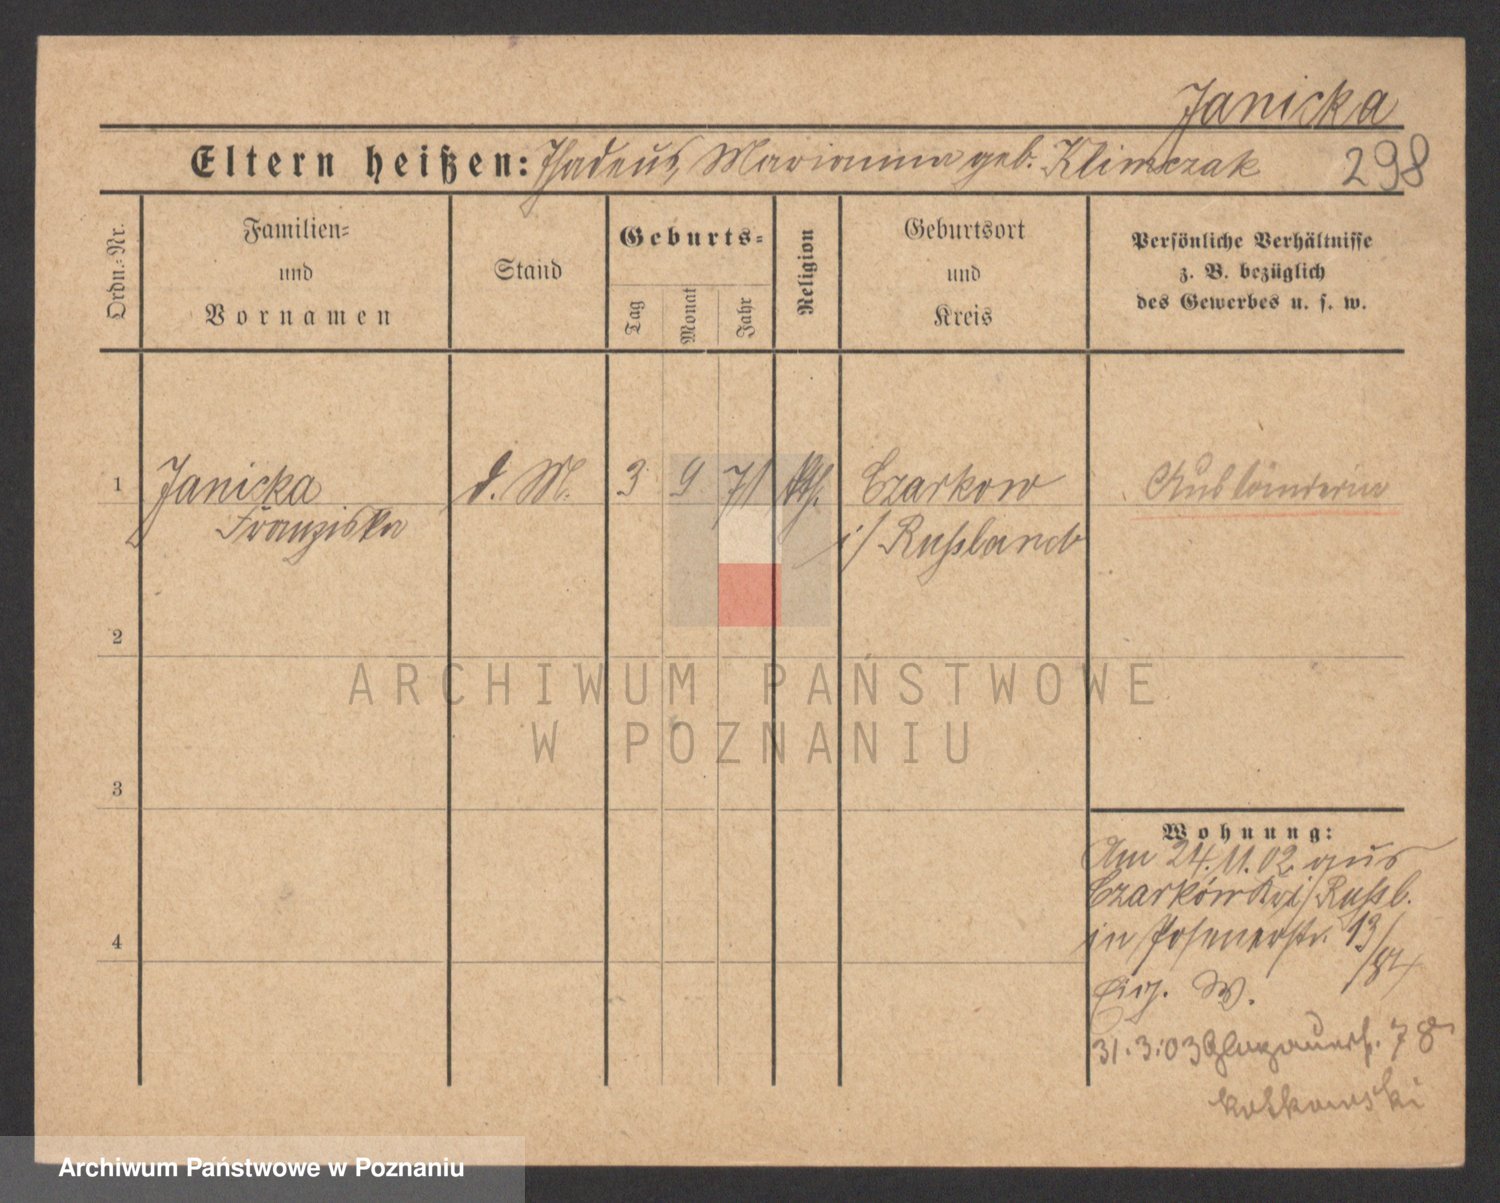 Janicka
Eltern heißen: Thadeus, Marianna geb. Klimczak
298
Ordn.-Nr.
Familien-
und
Vornamen
Stand
Geburts-
Tag
Monat
Jahr
Religion
Geburtsort
und
Kreis
Persönliche Verhältnisse
z. B. bezüglich
des Gewerbes u. s. w.
1 Janicka d. M. 3 9 71 kth. Czarkow Ausländerin
Franziska i/ Russland
2
3
4
Wohnung:
Am 24.11.02 aus
Czarków i/ Russl.
in Posenerstr. 13
/84
Eig. W.
31.3.03 Glogauerstr. 78
Kotkowski
ARCHIWUM PAŃSTWOWE
W POZNANIU
Archiwum Państwowe w Poznaniu